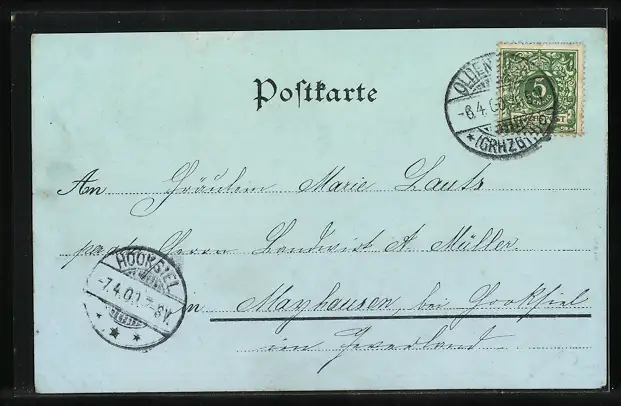 Postkarte
5
OLDEN
-6.4.0
*(GRHZGT.)
An Fräulein Marie Lauts
p. adr. Herrn Landwirt A Müller
HOOKSIEL
-7.4.0
7-8V.
* * *
in Mayhausen, bei Hooksiel
im Jeverland.